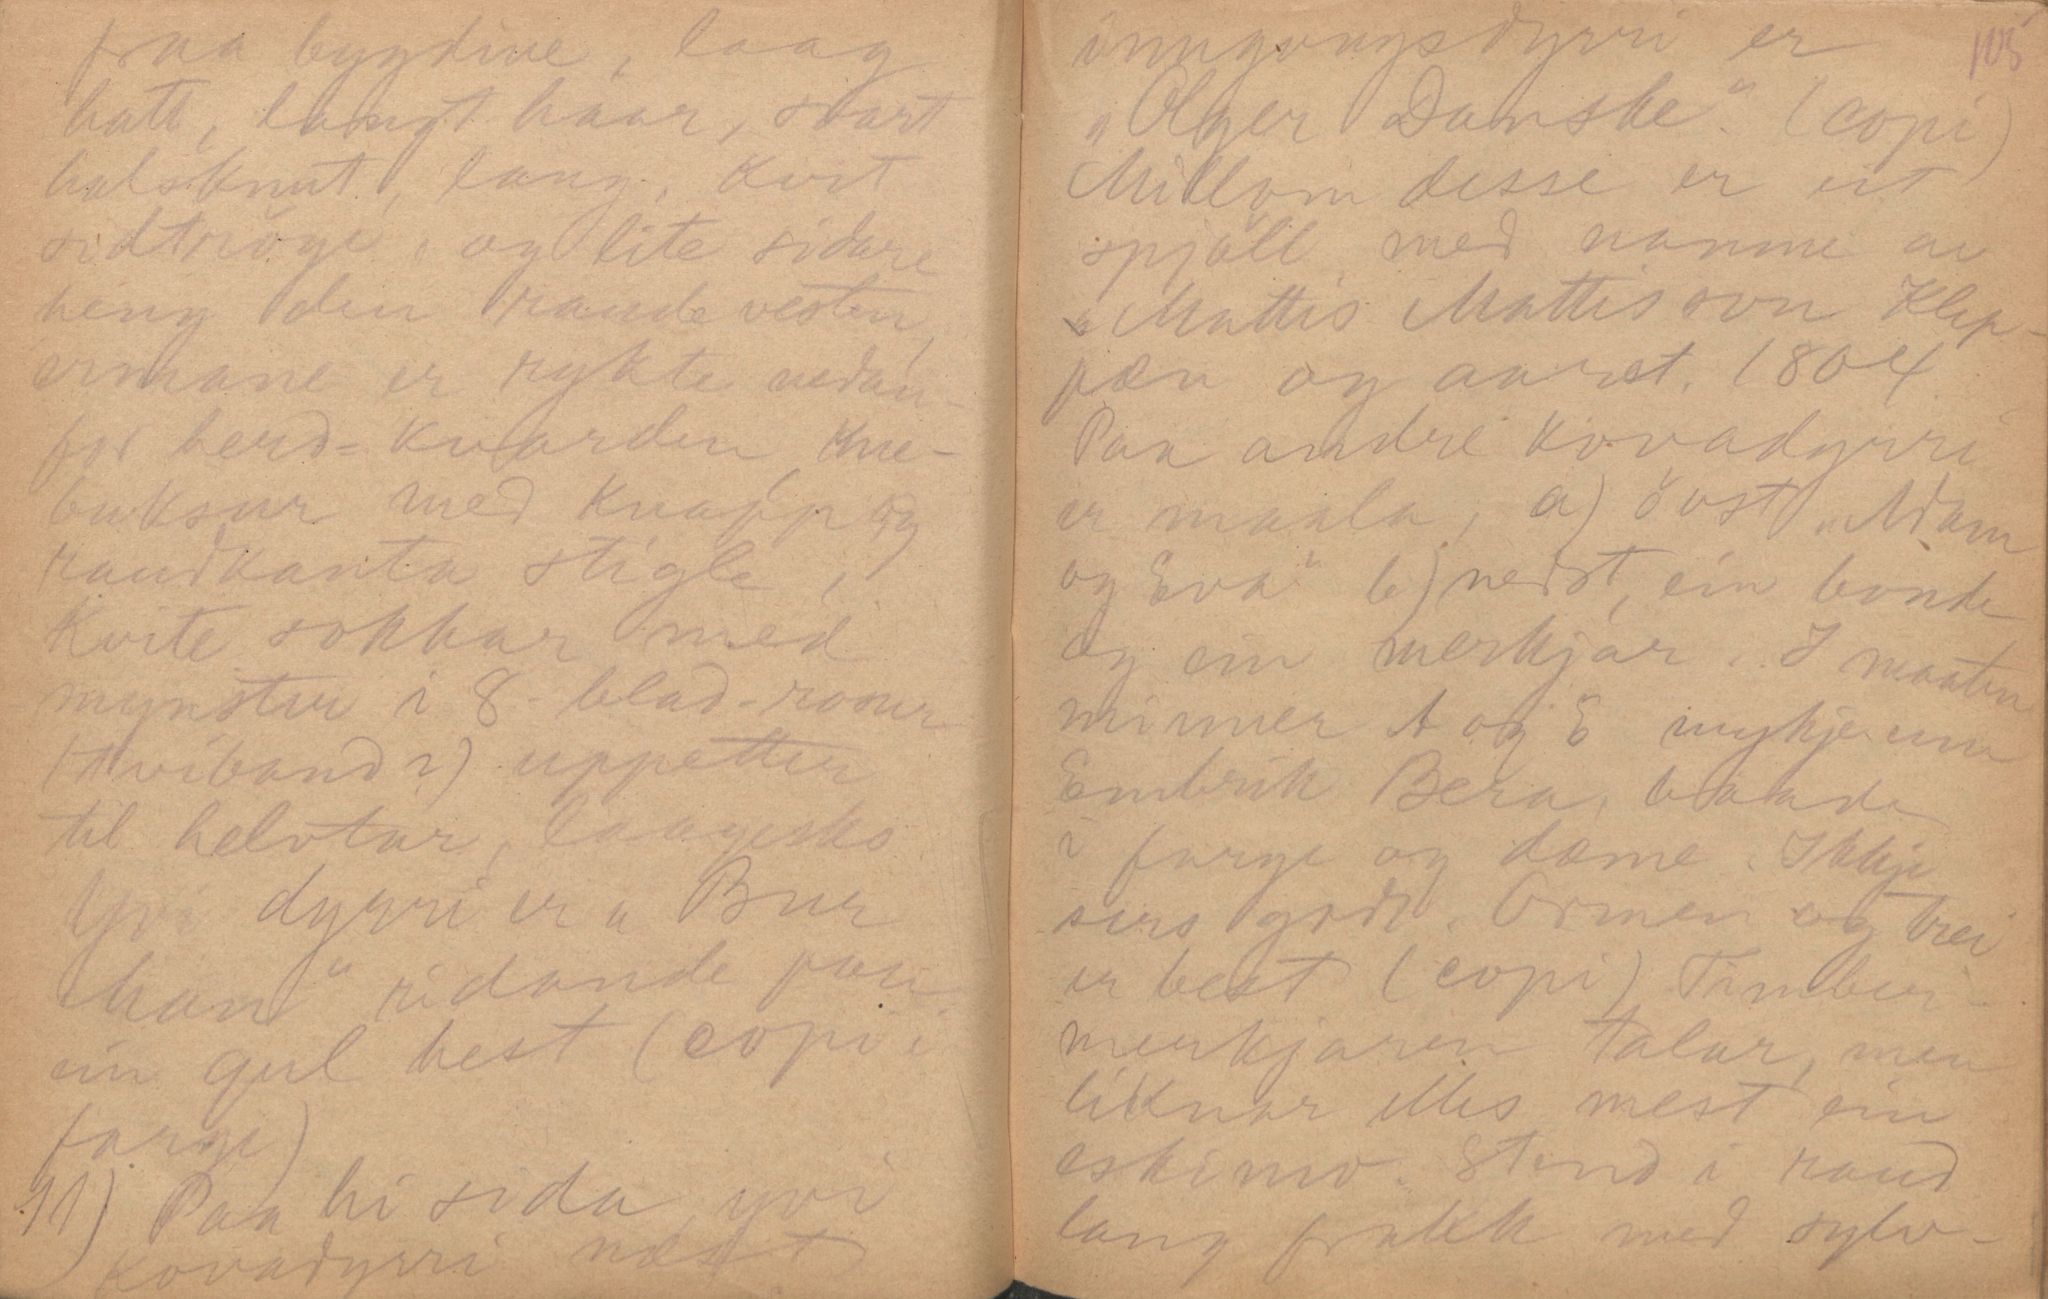 fraa bygdine, laag
hatt, langt haar, svart
halsknut, lang, kvit
sidtröge, og lite sidare
heng den raude vesten,
ermane er rykte nedan-
for herd-kvarden, Kne-
buksur med Knapp og
raudkanta stigle,
Kvite sokkar med
mynster i 8-blad-rosur
(tviband?) uppetter
til helvtar, laagesko
Yvi dyrri er "Bur
mann" ridande paa
ein gul hest (copi i
farge)
11) Paa hi sida yvi
kovadyrri næst
inngongsdyrri er
105
"Olger Danske" (copi)
Millom desse er eit
spjöll med namni av
"Mattis Mattisson Klep-
pæn og aaret. 1804
Paa andre kovadyrri
er maala, a) övst "Adam
og Eva" b) nedst, ein bonde
og ein merkjar. I maaten
minner A og E mykje um
Embrik Bera, baade
i farge og dæme. Ikkje
sers godt. Ormen og trei
er best (copi) Timber-
merkjaren talar, men
liknar elles mest ein
eskimo. Stend i raud
lang frakk med sylv-